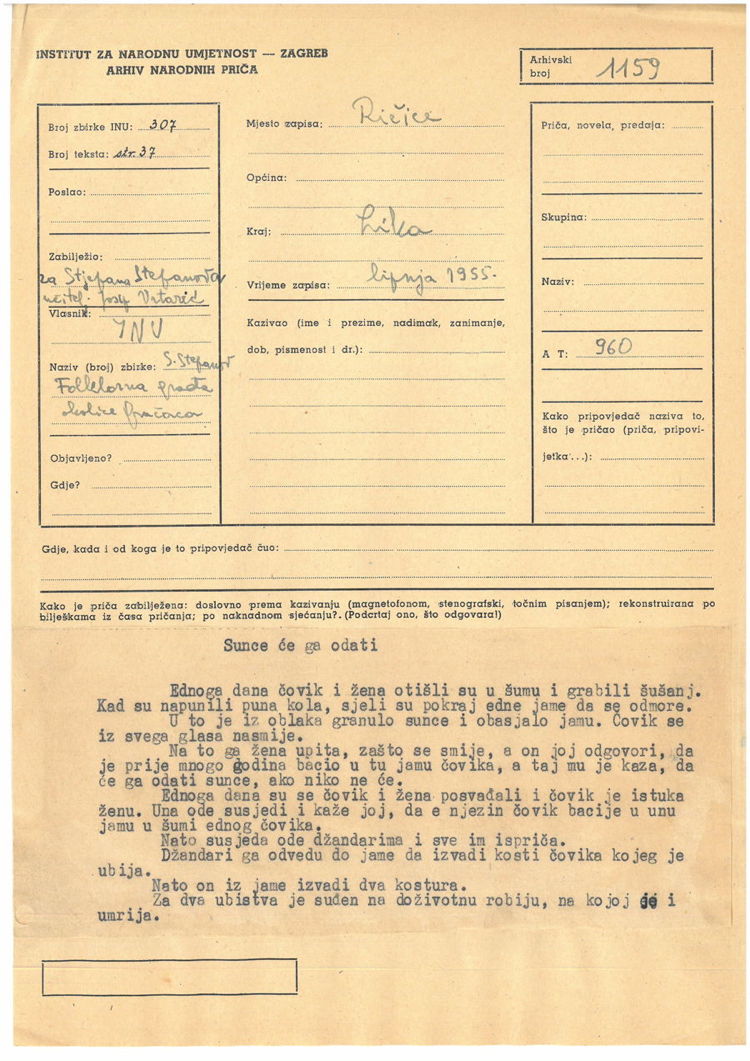 INSTITUT ZA NARODNU UMJETNOST — ZAGREB
ARHIV NARODNIH PRIČA
Arhivski
broj 1159
Broj zbirke INU: 307
Broj teksta: str. 37
Poslao:
Zabilježio:
za Stjepana Stefanova
učitelj. Josip Vrtarić
Vlasnik:
INU
Naziv (broj) zbirke: S. Stepanov
Folklorna građa
okolice Gračaca
Objavljeno?
Gdje?
Mjesto zapisa: Ričice
Općina:
Kraj: Lika
Vrijeme zapisa: lipnja 1955.
Kazivao (ime i prezime, nadimak, zanimanje,
dob, pismenost i dr.):
Priča, novela, predaja:
Skupina:
Naziv:
A T: 960
Kako pripovjedač naziva to,
što je pričao (priča, pripovi-
jetka...):
Gdje, kada i od koga je to pripovjedač čuo:
Kako je priča zabilježena: doslovno prema kazivanju (magnetofonom, stenografski, točnim pisanjem); rekonstruirana po
bilješkama iz časa pričanja; po naknadnom sjećanju?. (Podcrtaj ono, što odgovara!)
Sunce će ga odati
Ednoga dana čovik i žena otišli su u šumu i grabili šušanj.
Kad su napunili puna kola, sjeli su pokraj edne jame da se odmore.
U to je iz oblaka granulo sunce i obasjalo jamu. Čovik se
iz svega glasa nasmije.
Na to ga žena upita, zašto se smije, a on joj odgovori, da
je prije mnogo godina bacio u tu jamu čovika, a taj mu je kaza, da
će ga odati sunce, ako niko ne će.
Ednoga dana su se čovik i žena posvađali i čovik je istuka
ženu. Una ode susjedi i kaže joj, da e njezin čovik bacije u unu
jamu u šumi ednog čovika.
Nato susjeda ode džandarima i sve im ispriča.
Džandari ga odvedu do jame da izvadi kosti čovika kojeg je
ubija.
Nato on iz jame izvadi dva kostura.
Za dva ubistva je suđen na doživotnu robiju, na kojoj je i
umrija.